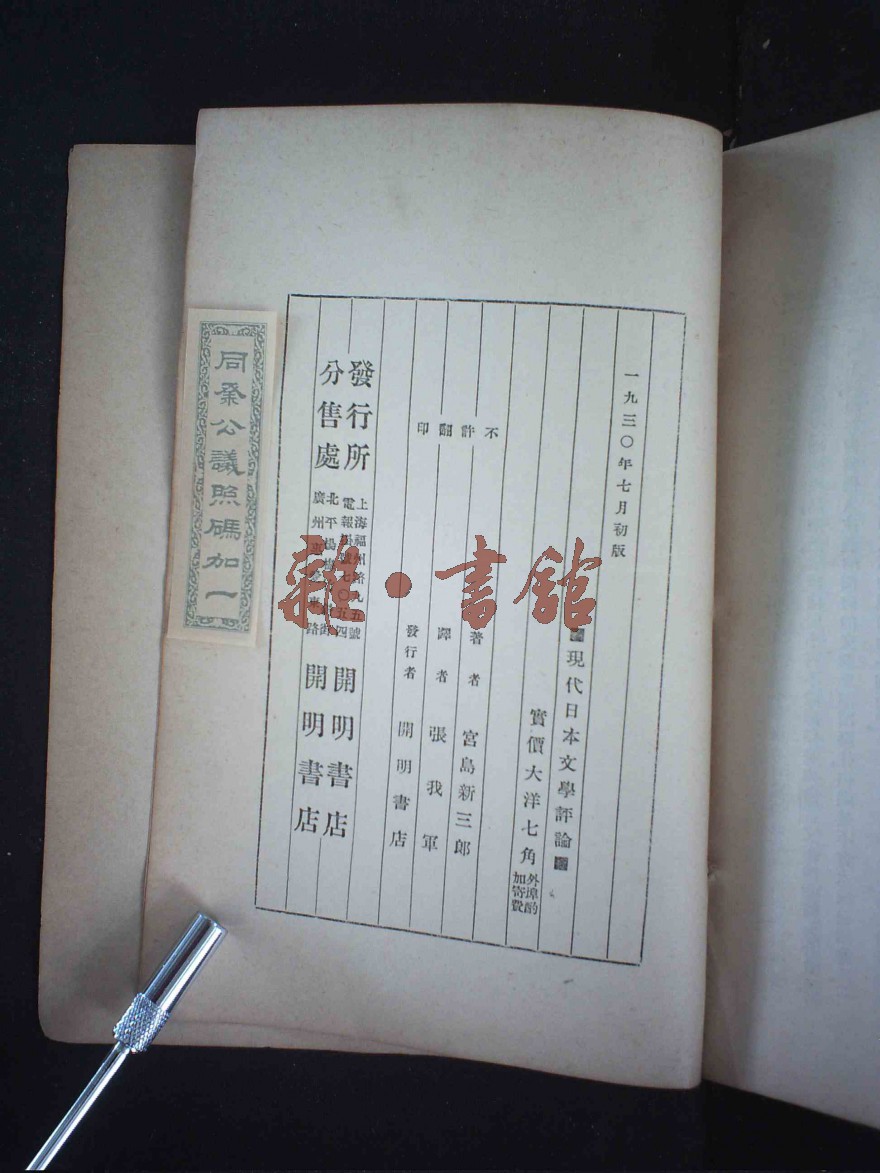 一九三〇年七月初版
現代日本文學評論
實價大洋七角
外埠酌加寄費
著者 宮島新三郎
譯者 張我軍
發行者 開明書店
不許翻印
發行所
上海福州路九五號
電報掛號七〇五四
開明書店
分售處
北平楊梅
廣州 東路
開明書店
同業公議照碼加一
雜·書館